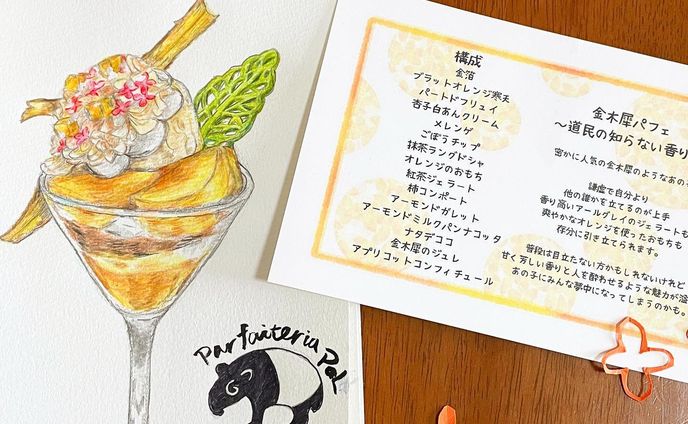 構成
金箔
ブラットオレンジ寒天
パートドフリュイ
杏子白あんクリーム
メレンゲ
ごぼうチップ
抹茶ラングドシャ
オレンジのおもち
紅茶ジェラート
柿コンポート
アーモンドガレット
アーモンドミルクパンナコッタ
ナタデココ
金木犀のジュレ
アプリコットコンフィチュール
金木犀パフェ
〜道民の知らない香り
密かに人気の金木犀のようなあの
謙虚で自分より
他の誰かを立てるのが上手
香り高いアールグレイのジェラートも
爽やかなオレンジを使ったおもちも
存分に引き立てられます。
普段は目立たない方かもしれないけれど
甘く芳しい香りと人を酔わせるような魅力が溢
あの子にみんな夢中になってしまうのかも。
Parfaiteria Pal